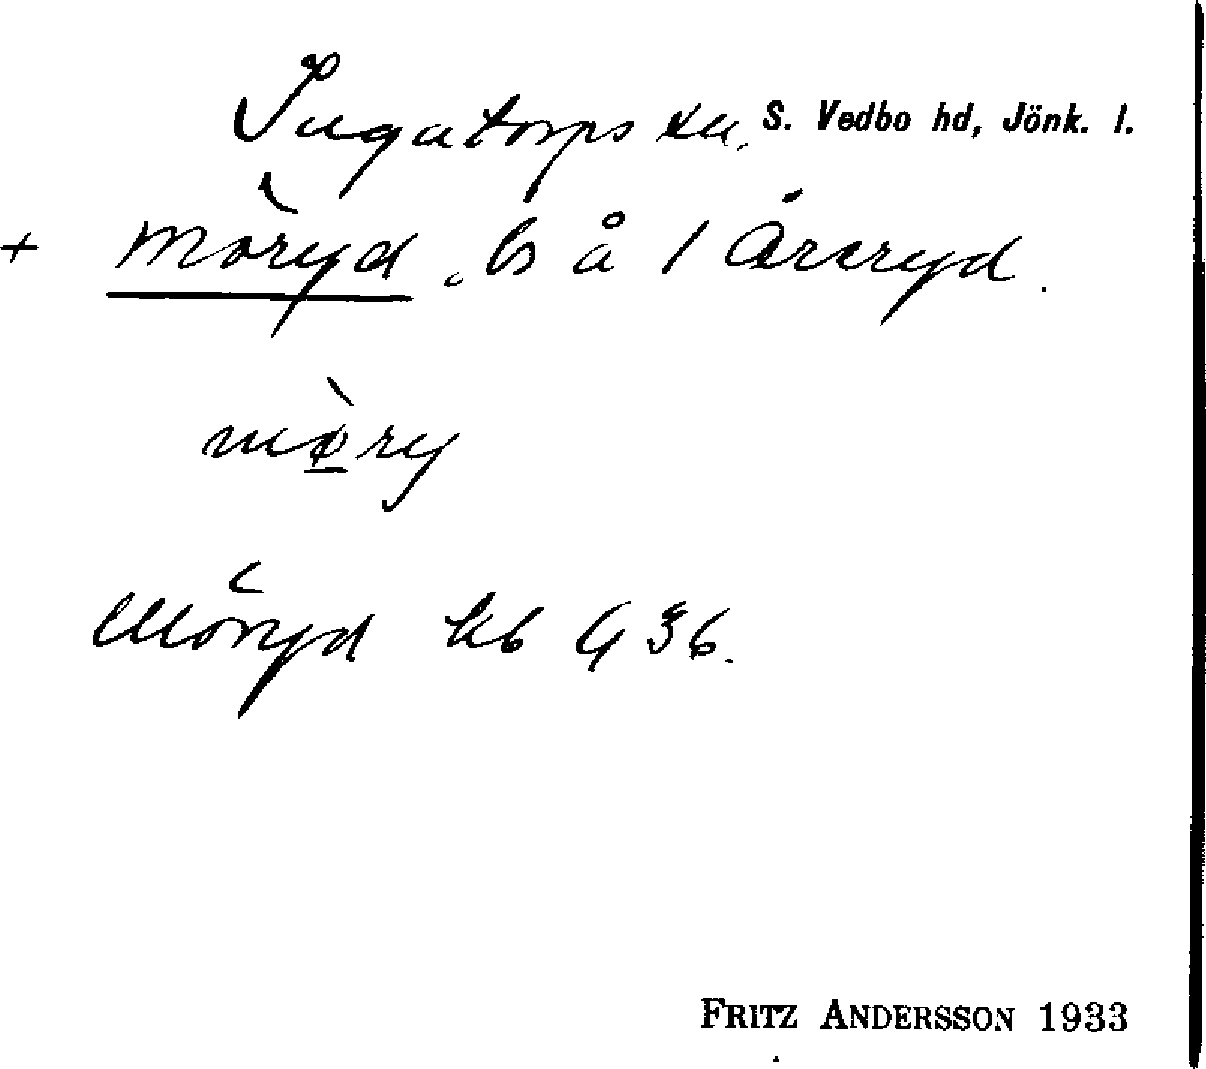 Ingatorps sn, S. Vedbo hd, Jönk. l.
+ Möryd, bs å 1 Årsryd.
møry
Möryd kb G 36.
FRITZ ANDERSSON 1933